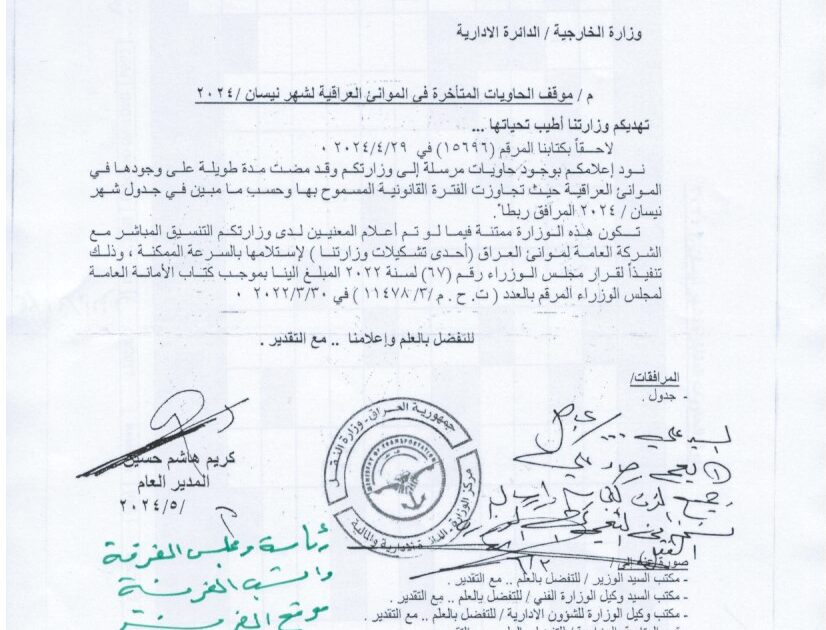 وزارة الخارجية / الدائرة الادارية
م / موقف الحاويات المتأخرة في الموانئ العراقية لشهر نيسان /٢٠٢٤
تهديكم وزارتنا أطيب تحياتها ...
لاحقاً بكتابنا المرقم (١٥٦٩٦) في ٢٠٢٤/٤/٢٩ ٠
نود إعلامكم بوجود حاويات مرسلة إلى وزارتكم وقد مضت مدة طويلة على وجودها في
الموانئ العراقية حيث تجاوزت الفترة القانونية المسموح بها وحسب ما مبين في جدول شهر
نيسان / ٢٠٢٤ المرافق ربطاً
تكون هذه الوزارة ممتنة فيما لو تم أعلام المعنيين لدى وزارتكم التنسيق المباشر مع
الشركة العامة لموانئ العراق (أحدى تشكيلات وزارتنا ) لإستلامها بالسرعة الممكنة ، وذلك
تنفيذاً لقرار مجلس الوزراء رقم (٦٧) لسنة ٢٠٢٢ المبلغ الينا بموجب كتاب الأمانة العامة
لمجلس الوزراء المرقم بالعدد ( ت. ح . م /٣/ ١١٤٧٨ ) في ٢٠٢٢/٣/٣٠ ٠
للتفضل بالعلم وإعلامنا .. مع التقدير .
المرافقات/
- جدول .
جمهورية العراق - وزارة النقل
MINISTRY OF TRANSPORTATION
مركز الوزارة - الدائرة الادارية والمالية
كريم هاشم حسين
المدير العام
/٢٠٢٤/٥
السيد علي ...
صورة عنه إلى /
- مكتب السيد الوزير / للتفضل بالعلم .. مع التقدير .
- مكتب السيد وكيل الوزارة الفني / للتفضل بالعلم .. مع التقدير .
- مكتب وكيل الوزارة للشؤون الادارية / للتفضل بالعلم .. مع التقدير .